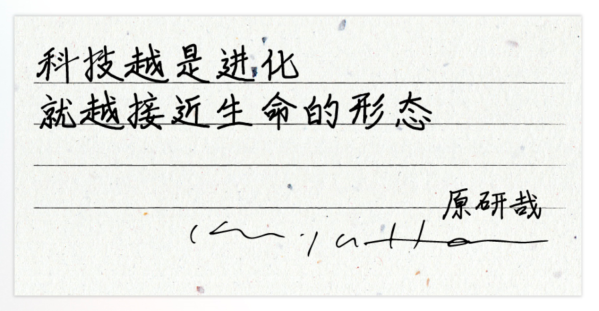 科技越是进化
就越接近生命的形态
原研哉